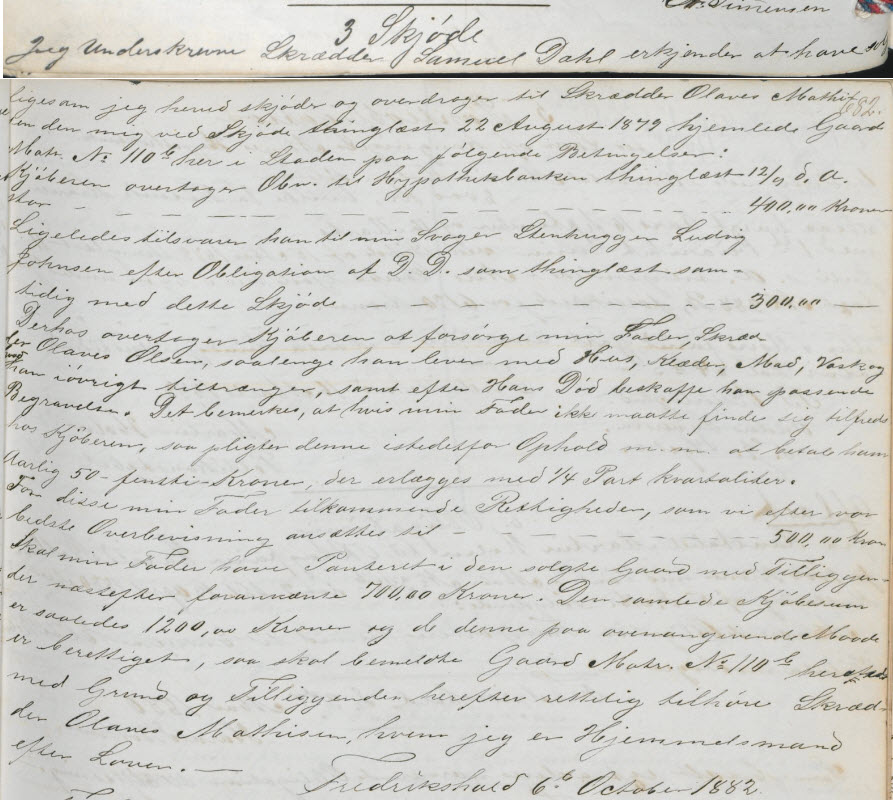 N. Simensen
3 Skjøde
Jeg Underskrevne Skrædder Samuel Dahl erkjender at have
682.
ligesom jeg herved skjøder og overdrager til Skrædder Olaves Mathi
en den mig ved Skjøde thinglæst 22 August 1879 hjemlede Gaard
Matr. No 110 b her i Staden paa følgende Betingelser:
Kjøberen overtager Obn. til Hypothekbanken thinglæst 12/9 d. A.
stor - - - - 400,00 Kroner
Ligeledes tilsvarer han til min Svoger Stenhugger Ludvig
Johnsen efter Obligation af D. D. som thinglæst sam-
tidig med dette Skjøde - - - 300,00 -
Derhos overtager Kjøberen at forsørge min Fader, Skræd-
der Olaves Olsen, saalenge han lever med Hus, Klæder, Mad, Vask og
hvad
han iøvrigt tiltrænger, samt efter Hans Død beskaffe ham passende
Begravelse. Det bemerkes, at hvis min Fader ikke maatte finde sig tilfreds
hos Kjøberen, saa pligter denne istedetfor Ophold m. m. at betale ham
Aarlig 50 - femti - Kroner, der erlægges med 1/4 Part kvartaliter.
For disse min Fader tilkommende Rettigheder, som vi efter vor
bedste Overbevisning ansættes til - 500,00 Kron
Skal min Fader have Panteret i den solgte Gaard med Tilliggen-
der næstefter forannævnte 700,00 Kroner. Den samlede Kjøbesum
er saaledes 1200,00 Kroner og da denne paa ovenangivende Maade
er berettiget, saa skal bemeldte Gaard Matr. No 110 b her
med Grund og Tilliggender herefter rettelig tilhøre Skræd-
der Olaves Mathisen, hvem jeg er Hjemmelsmand
efter Loven. -
Fredrikshald 6te October 1882.